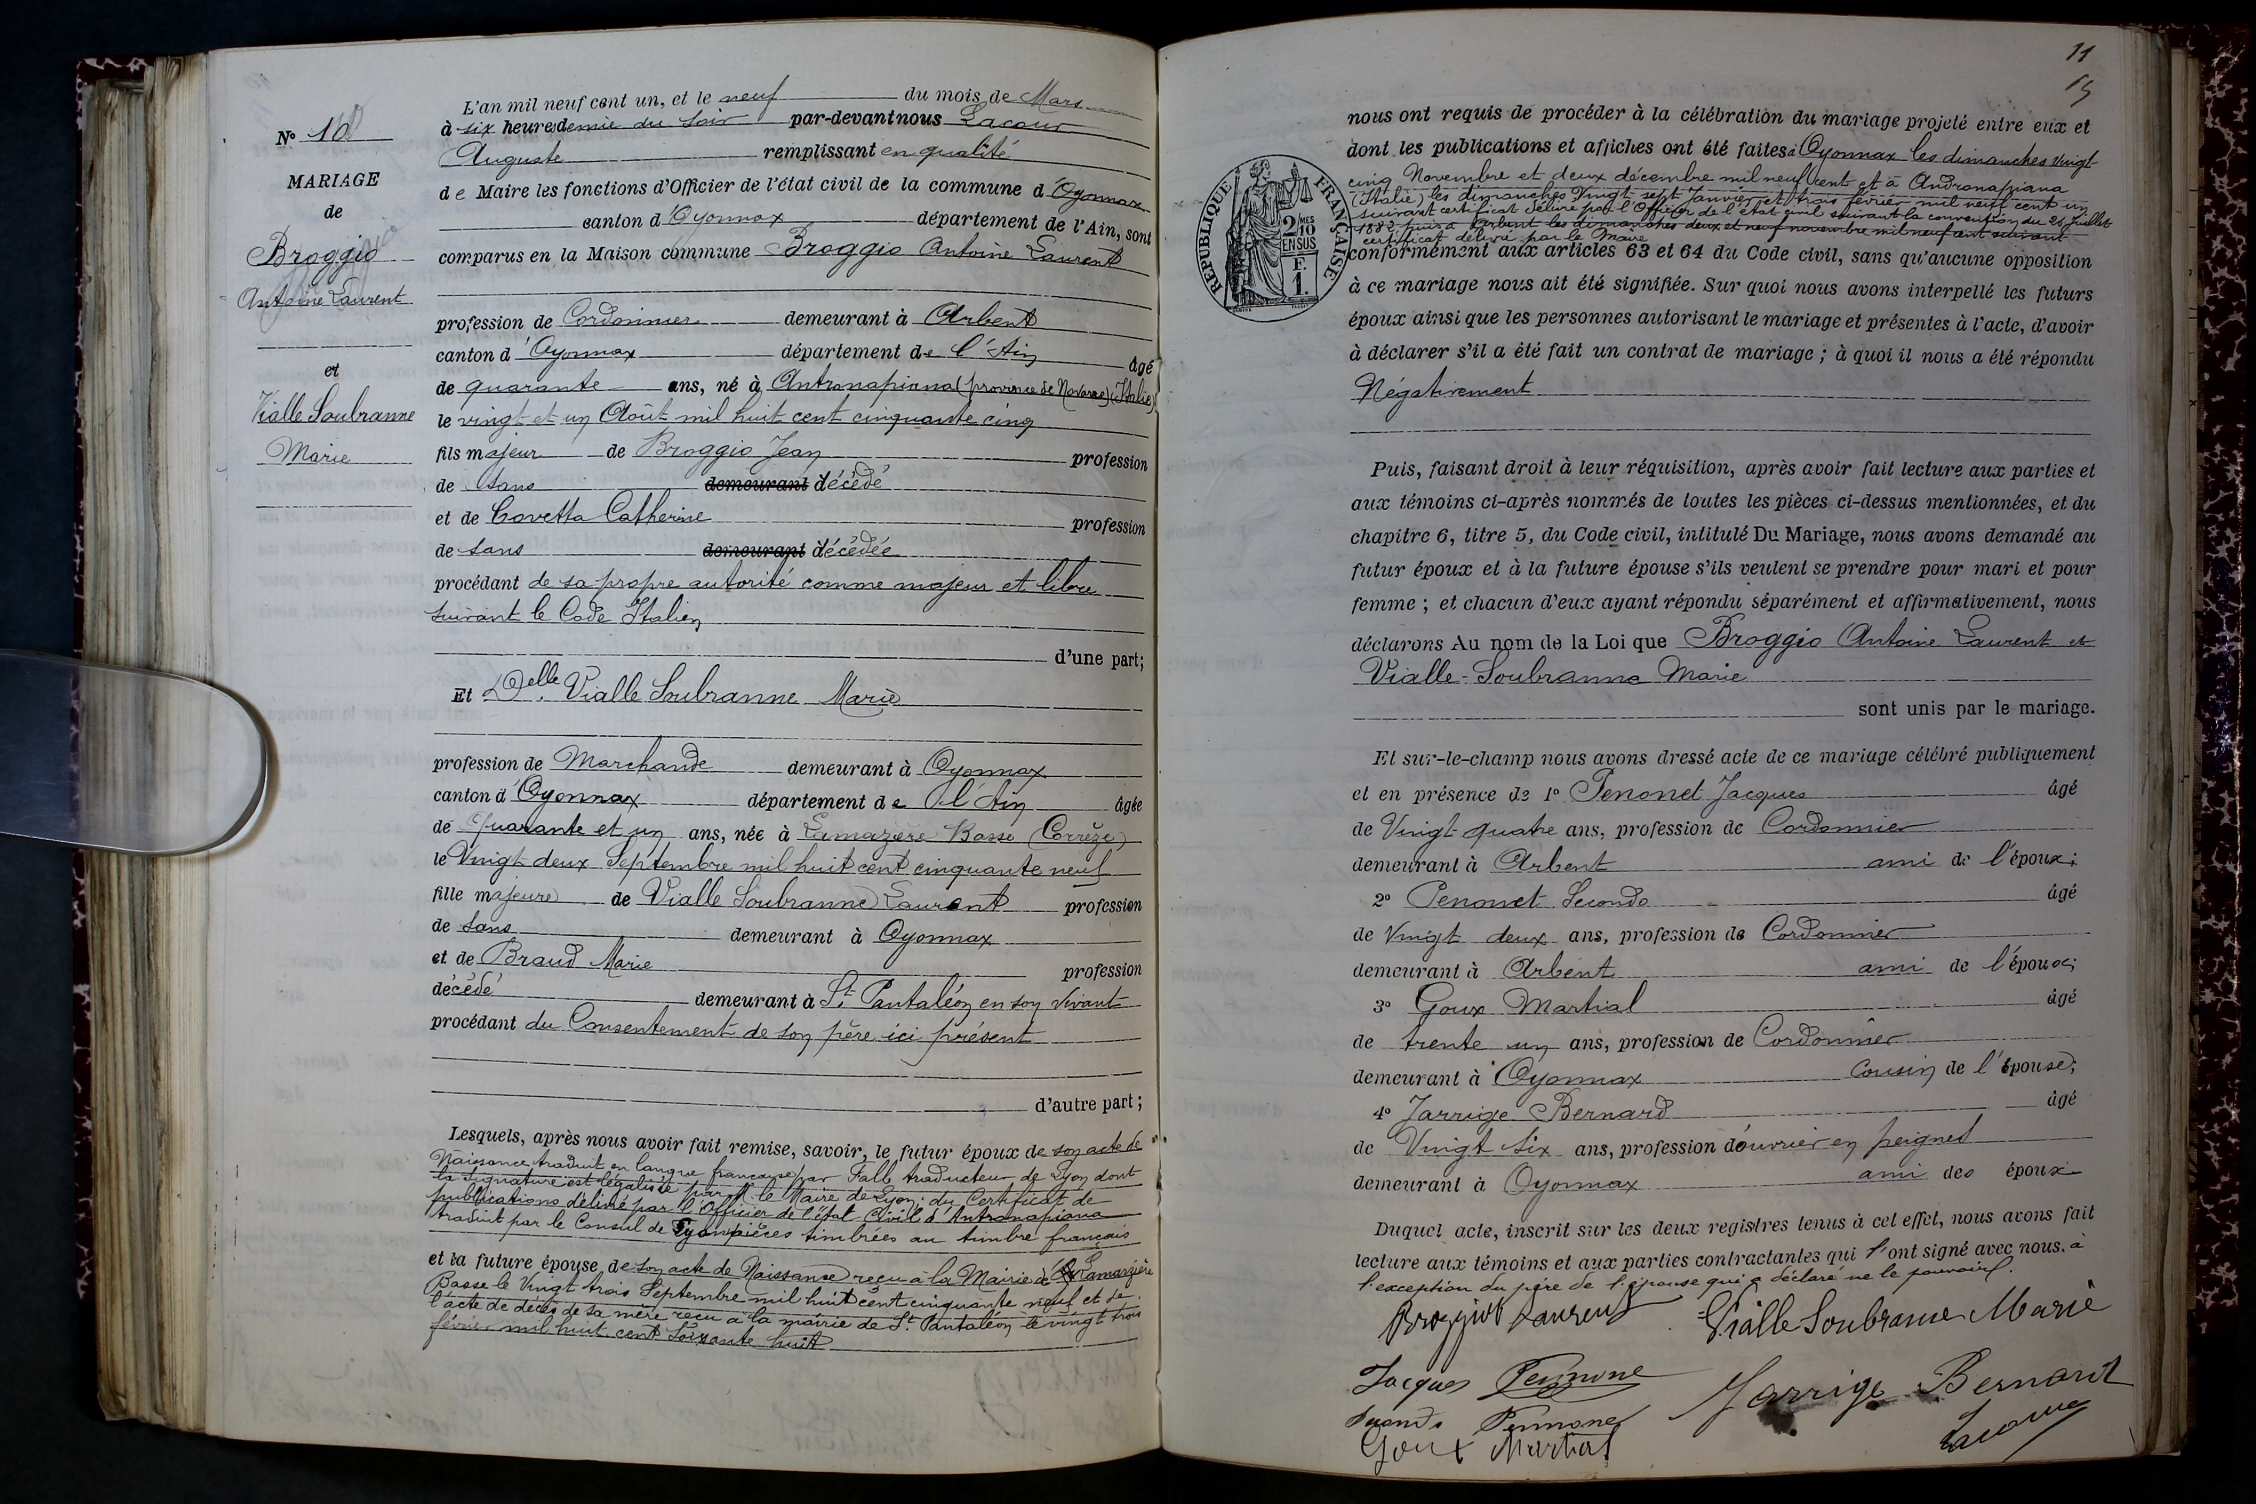 N° 10
MARIAGE
de
Broggio
Antoine Laurent
et
Vialle Soubranne
Marie
L'an mil neuf cent un, et le neuf du mois de Mars
à six heures demie du soir par-devant nous Lacour
Auguste remplissant en qualité
de Maire les fonctions d'Officier de l'état civil de la commune d'Oyonnax
canton d'Oyonnax département de l'Ain, sont
comparus en la Maison commune Broggio Antoine Laurent
profession de Cordonnier demeurant à Arbent
canton d'Oyonnax département de l'Ain âgé
de quarante ans, né à Antronapiana (province de Novarre) (Italie)
le vingt et un Août mil huit cent cinquante cinq
fils majeur de Broggio Jean profession
de sans demeurant décédé
et de Covetta Catherine profession
de sans demeurant décédée
procédant de sa propre autorité comme majeur et libre
suivant le Code Italien
d'une part;
Et Delle Vialle Soubranne Marie
profession de Marchande demeurant à Oyonnax
canton d'Oyonnax département de l'Ain âgée
de Quarante et un ans, née à Lamazière Basse (Corrèze)
le Vingt deux Septembre mil huit cent cinquante neuf
fille majeure de Vialle Soubranne Laurent profession
de sans demeurant à Oyonnax
et de Braud Marie profession
décédé demeurant à St Pantaléon en son vivant
procédant du Consentement de son père ici présent
d'autre part;
Lesquels, après nous avoir fait remise, savoir, le futur époux de son acte de
Naissance traduit en langue française par Falb traducteur de Lyon dont
la signature est légalisée par M. le Maire de Lyon; du Certificat de
publications délivré par l'Officier de l'état Civil d'Antronapiana
traduit par le Consul de Lyon pièces timbrées au timbre français
et la future épouse de son acte de Naissance reçu à la Mairie de Lamazière
Basse le Vingt trois Septembre mil huit cent cinquante neuf et de
l'acte de décès de sa mère reçu à la mairie de St Pantaléon le vingt trois
février mil huit cent soixante huit
11
REPUBLIQUE FRANÇAISE
2 MES
10
EN SUS
F.
1.
nous ont requis de procéder à la célébration du mariage projeté entre eux et
dont les publications et affiches ont été faites à Oyonnax les dimanches vingt
cinq Novembre et deux décembre mil neuf cent et à Andronapiana
(Italie) les dimanches Vingt sept Janvier et trois février mil neuf cent un
suivant certificat délivré par l'Officier de l'état civil suivant la convention du 26 Juillet
1882 puis à Arbent les dimanches deux et neuf novembre mil neuf cent suivant
certificat délivré par le Maire
conformément aux articles 63 et 64 du Code civil, sans qu'aucune opposition
à ce mariage nous ait été signifiée. Sur quoi nous avons interpellé les futurs
époux ainsi que les personnes autorisant le mariage et présentes à l'acte, d'avoir
à déclarer s'il a été fait un contrat de mariage; à quoi il nous a été répondu
Négativement
Puis, faisant droit à leur réquisition, après avoir fait lecture aux parties et
aux témoins ci-après nommés de toutes les pièces ci-dessus mentionnées, et du
chapitre 6, titre 5, du Code civil, intitulé Du Mariage, nous avons demandé au
futur époux et à la future épouse s'ils veulent se prendre pour mari et pour
femme; et chacun d'eux ayant répondu séparément et affirmativement, nous
déclarons Au nom de la Loi que Broggio Antoine Laurent et
Vialle-Soubranne Marie
sont unis par le mariage.
Et sur-le-champ nous avons dressé acte de ce mariage célébré publiquement
et en présence de 1° Penonet Jacques âgé
de Vingt quatre ans, profession de Cordonnier
demeurant à Arbent ami de l'époux;
2° Penonet Secondo âgé
de Vingt deux ans, profession de Cordonnier
demeurant à Arbent ami de l'époux;
3° Goux Martial âgé
de trente un ans, profession de Cordonnier
demeurant à Oyonnax Cousin de l'épouse;
4° Jarrige Bernard âgé
de Vingt six ans, profession d'ouvrier en peignes
demeurant à Oyonnax ami des époux
Duquel acte, inscrit sur les deux registres tenus à cet effet, nous avons fait
lecture aux témoins et aux parties contractantes qui l'ont signé avec nous. à
l'exception du père de l'épouse qui a déclaré ne le pouvoir.
Broggio Laurent Vialle Soubranne Marie
Jacques Pennone Jarrige Bernard
Secondo Pennone Lacour
Goux Martial